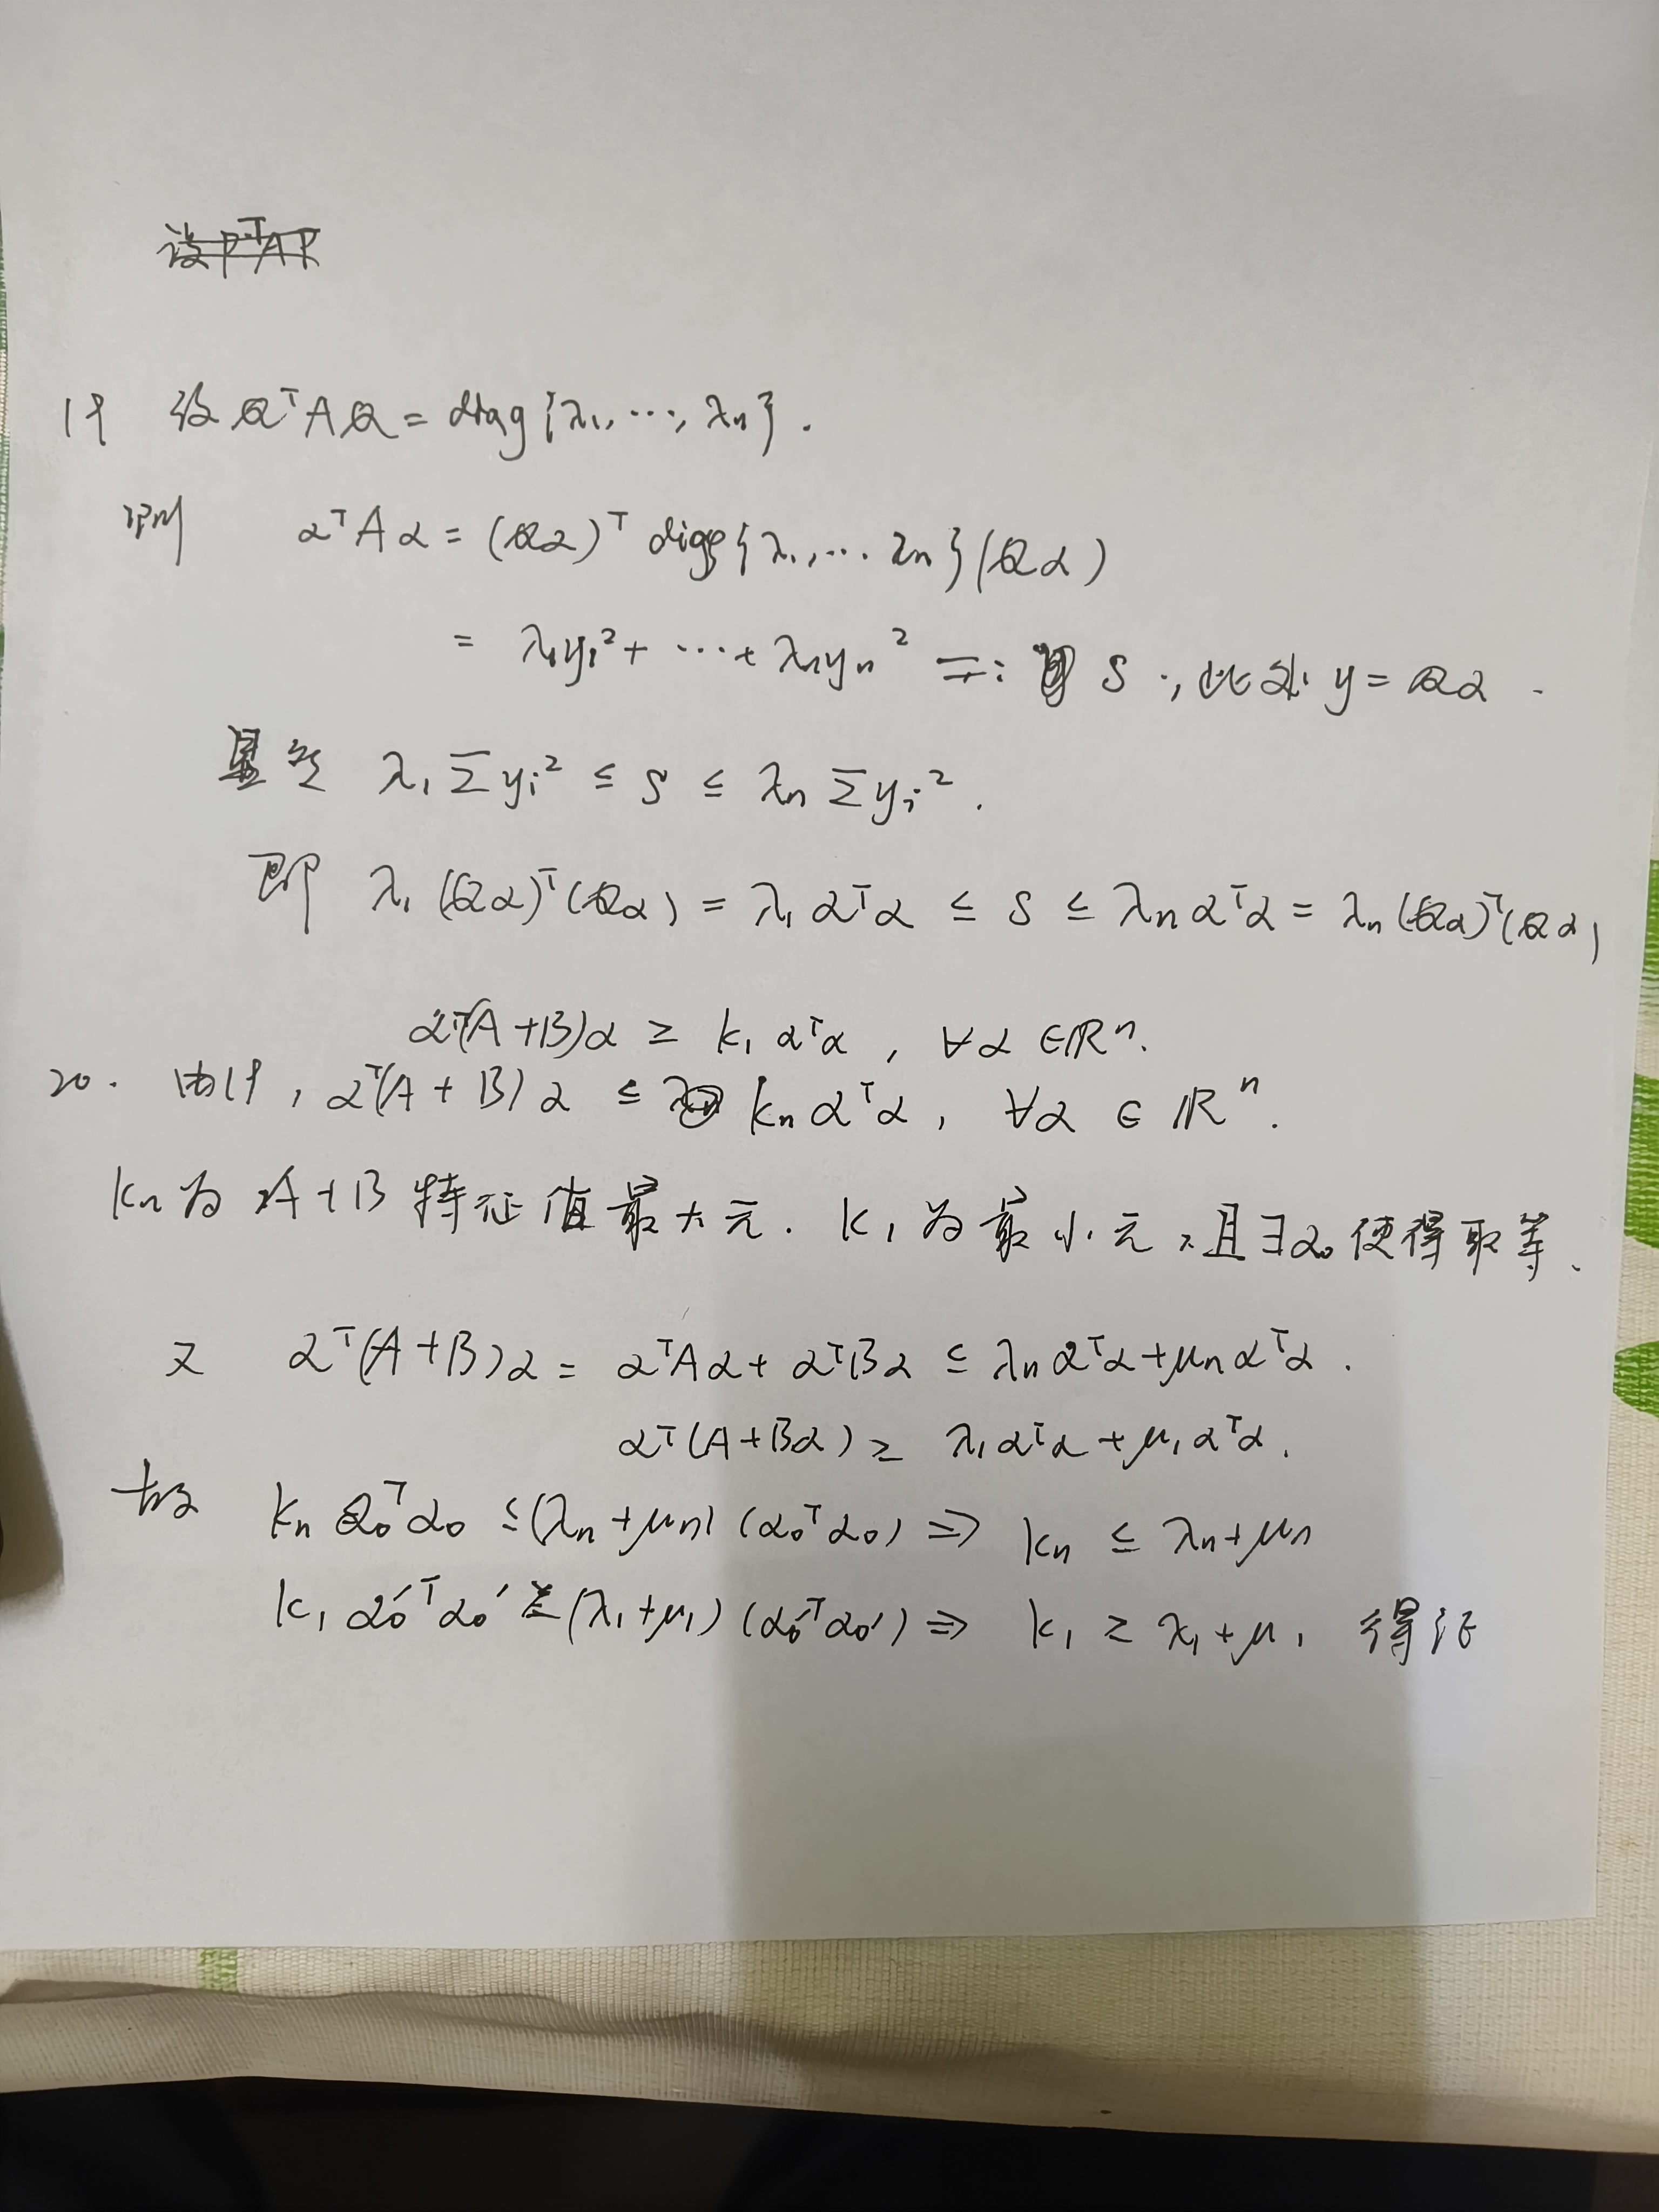 设PᵀAP
19 设 QᵀAQ = diag{λ₁, ⋯, λₙ}.
则 αᵀAα = (Qα)ᵀ diag{λ₁, ⋯ λₙ}(Qα)
= λ₁y₁² + ⋯ + λₙyₙ² =: S ., 此处 y = Qα .
显然 λ₁ Σyᵢ² ≤ S ≤ λₙ Σyᵢ².
即 λ₁ (Qα)ᵀ(Qα) = λ₁ αᵀα ≤ S ≤ λₙ αᵀα = λₙ (Qα)ᵀ(Qα)
αᵀ(A+B)α ≥ k₁ αᵀα , ∀α ∈ ℝⁿ.
20. 由19, αᵀ(A+B)α ≤ kₙ αᵀα, ∀α ∈ ℝⁿ.
kₙ为 A+B 特征值最大元. k₁为最小元, 且∃α₀ 使得取等.
又 αᵀ(A+B)α = αᵀAα + αᵀBα ≤ λₙ αᵀα + μₙ αᵀα .
αᵀ(A+Bα) ≥ λ₁αᵀα + μ₁αᵀα.
故 kₙ α₀ᵀα₀ ≤ (λₙ+μₙ) (α₀ᵀα₀) ⇒ kₙ ≤ λₙ+μₙ
k₁ α₀′ᵀα₀′ ≥ (λ₁+μ₁) (α₀′ᵀα₀′) ⇒ k₁ ≥ λ₁+μ₁ 得证